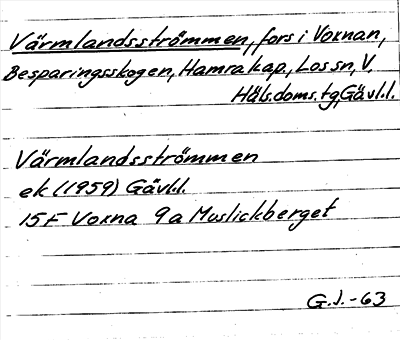 Värmlandsströmmen, fors i Voxnan,
Besparingsskogen, Hamra kap., Los sn, V.
Häls. doms. tg, Gävl.l.
Värmlandsströmmen
ek (1959) Gävl.l.
15F Voxna 9a Muslickberget
G.J.-63